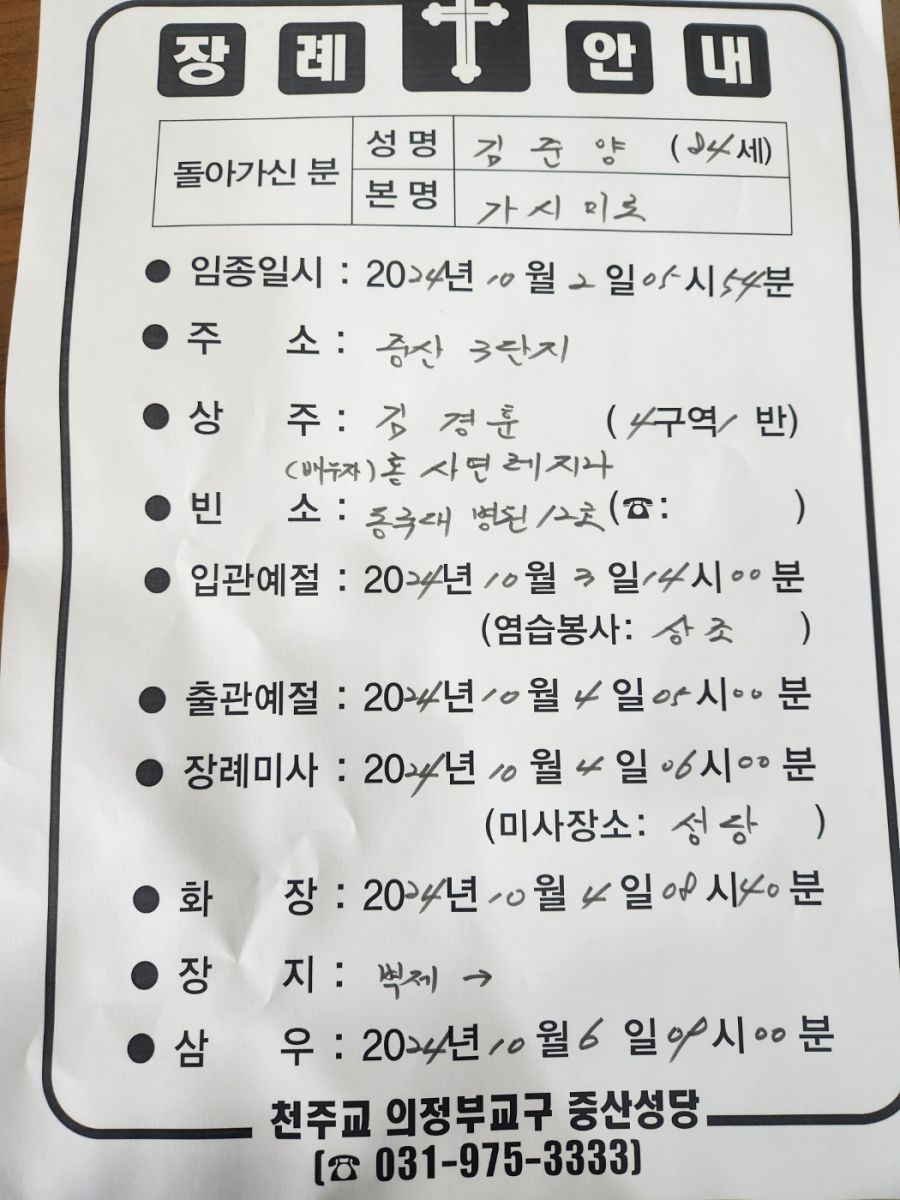 장례 안내
돌아가신 분 성명 김 준 양 (84세)
본명 가시미로
● 임종일시 : 2024년 10월 2일 05시 54분
● 주 소 : 중산 3단지
● 상 주 : 김 경 훈 (4구역 1 반)
(배우자) 홍 사연 레지나
● 빈 소 : 동국대 병원 12호 (☎: )
● 입관예절 : 2024년 10월 3일 14시 00분
(염습봉사: 상조 )
● 출관예절 : 2024년 10월 4일 05시 00분
● 장례미사 : 2024년 10월 4일 06시 00분
(미사장소: 성당 )
● 화 장 : 2024년 10월 4일 08시 40분
● 장 지 : 벽제 →
● 삼 우 : 2024년 10월 6일 08시 00분
천주교 의정부교구 중산성당
(☎ 031-975-3333)